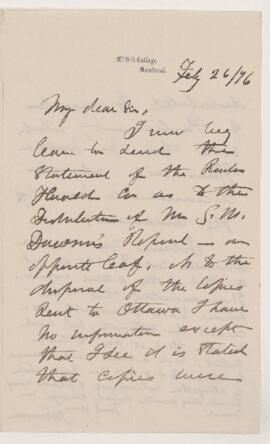 McGill College,
Montreal.
Feby 26/76
My dear Sir,
I now beg
leave to send the
Statement of the
Herald Co as to the
Distribution of Mr G. M.
Dawson's Report — on
opposite leaf. As to the
disposal of the Copies
sent to Ottawa I have
no information except
that I see it is stated
that copies were